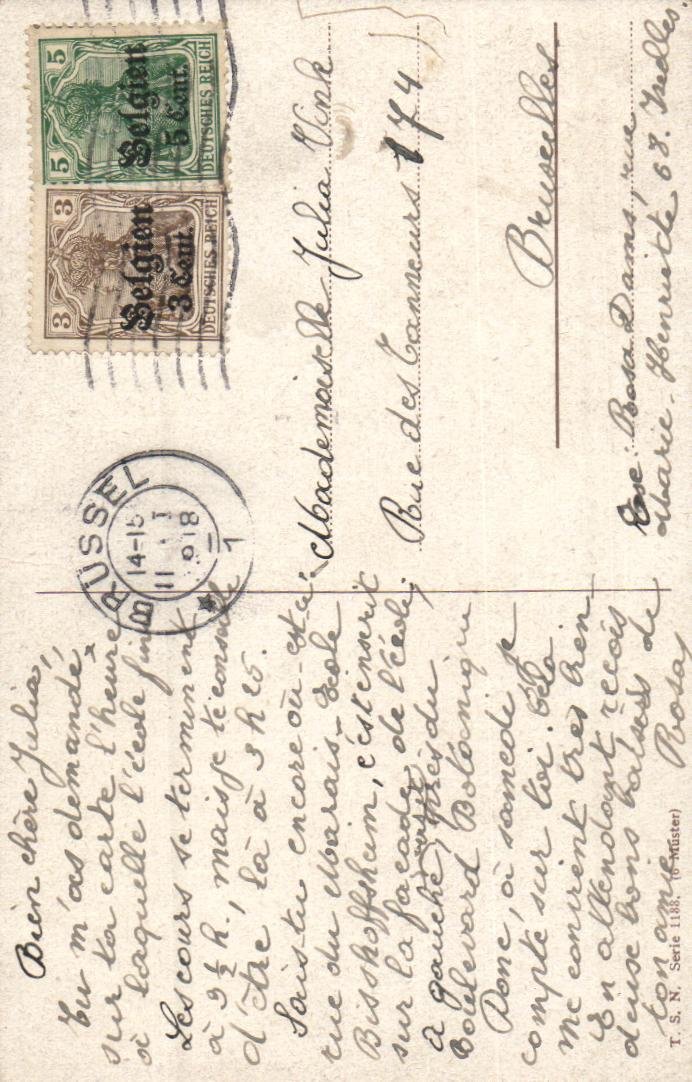 Bien chère Julia,
Tu m'as demandé,
sur ta carte l'heure
à laquelle l'école finit
Les cours se terminent
à 3 ½ h, mais je te conseille
d'être là à 3 h 25.
Sais-tu encore où est-ce?
rue du Marais - Ecole
Bisshoffsheim, c'est inscrit
sur la façade de l'école,
à gauche, près du
Boulevard Botanique
Donc, à samedi je
compte sur toi. Cela
me convient très bien
En attendant reçois
deux bons baisers de
ton amie Rosa
T. S. N. Serie 1188. (6 Muster)
5 5
Belgien
5 Cent.
DEUTSCHES REICH
3 3
Belgien
3 Cent.
DEUTSCHES REICH
BRÜSSEL
14-15
11
918
1
Mademoiselle Julia Vink
Rue des Tanneurs 174
Bruxelles
Exp: Rosa Dams, rue
Marie-Henriette 68. Ixelles.